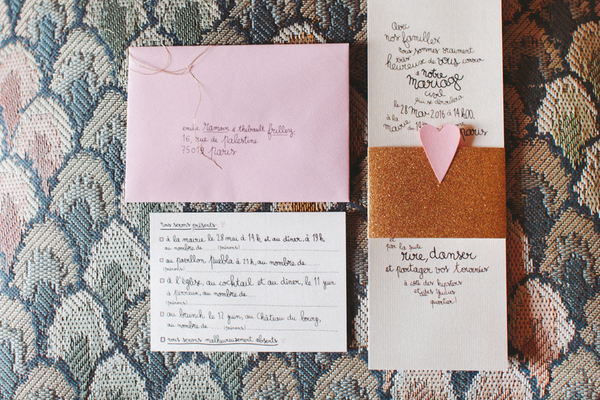 emilie Ramon & thibault frilley
16, rue de palestine
75019 paris
nous serons présents
à la mairie le 28 mai à 14h et au dîner, à 19h
au nombre de (prénoms)
au pavillon puebla à 21h, au nombre de
(prénoms)
à l'église, au cocktail et au dîner, le 11 juin
à perreux, au nombre de
(prénoms)
au brunch le 12 juin, au château du bourg,
au nombre de (prénoms)
nous serons malheureusement absents
Avec
nos familles
nous sommes vraiment
heureux de vous convier
à notre
mariage
civil
qui se déroulera
le 28 mai 2016 à 14h00,
à la
mairie du 19
paris
et
par la suite
rire, danser
et partager vos tonneries
à côté des hipsters
et des
quartier!